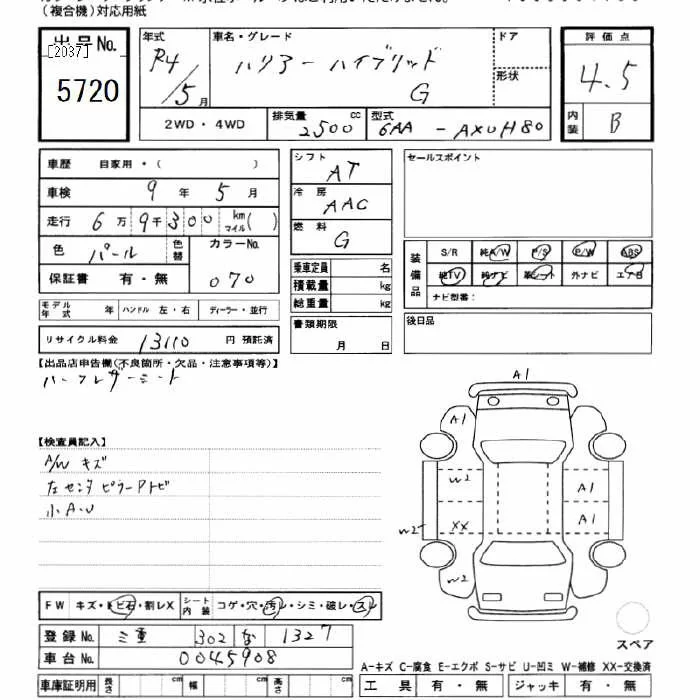 （複合機）対応用紙
出品No.
[2037]
5720
年式
R4/5月
車名・グレード
ハリアーハイブリッド
G
ドア
形状
評価点
4.5
内装
B
2WD・4WD
排気量
2500
cc
型式
6AA - AXUH80
車歴 自家用・( )
車検 9年 5月
走行 6万 9千 300 km マイル( )
色 パール
色替
カラーNo.
070
保証書 有・無
モデル年式 年
ハンドル 左・右
ディーラー・並行
リサイクル料金 13110 円 預託済
シフト
AT
冷房
AAC
燃料
G
乗車定員 名
積載量 kg
総重量 kg
書類期限
月 日
セールスポイント
装備品
S/R 純A/W P/S P/W ABS
純TV 純ナビ 革シート 外ナビ エアB
ナビ型番：
後日品
【出品店申告欄(不良箇所・欠品・注意事項等)】
ハーフレザーシート
【検査員記入】
A/W キズ
左センターピラーアトビ
小A・U
A1
A1
W2
A1
W2
XX
A1
W2
FW キズ・トビ石・割レX
シート内装 コゲ・穴・汚レ・シミ・破レ・スレ
登録No. 三重 302 な 1327
車台No. 0045908
車庫証明用 長さ cm 幅 cm 高さ cm
スペア
A-キズ C-腐食 E-エクボ S-サビ U-凹ミ W-補修 XX-交換済
工具 有・無 ジャッキ 有・無